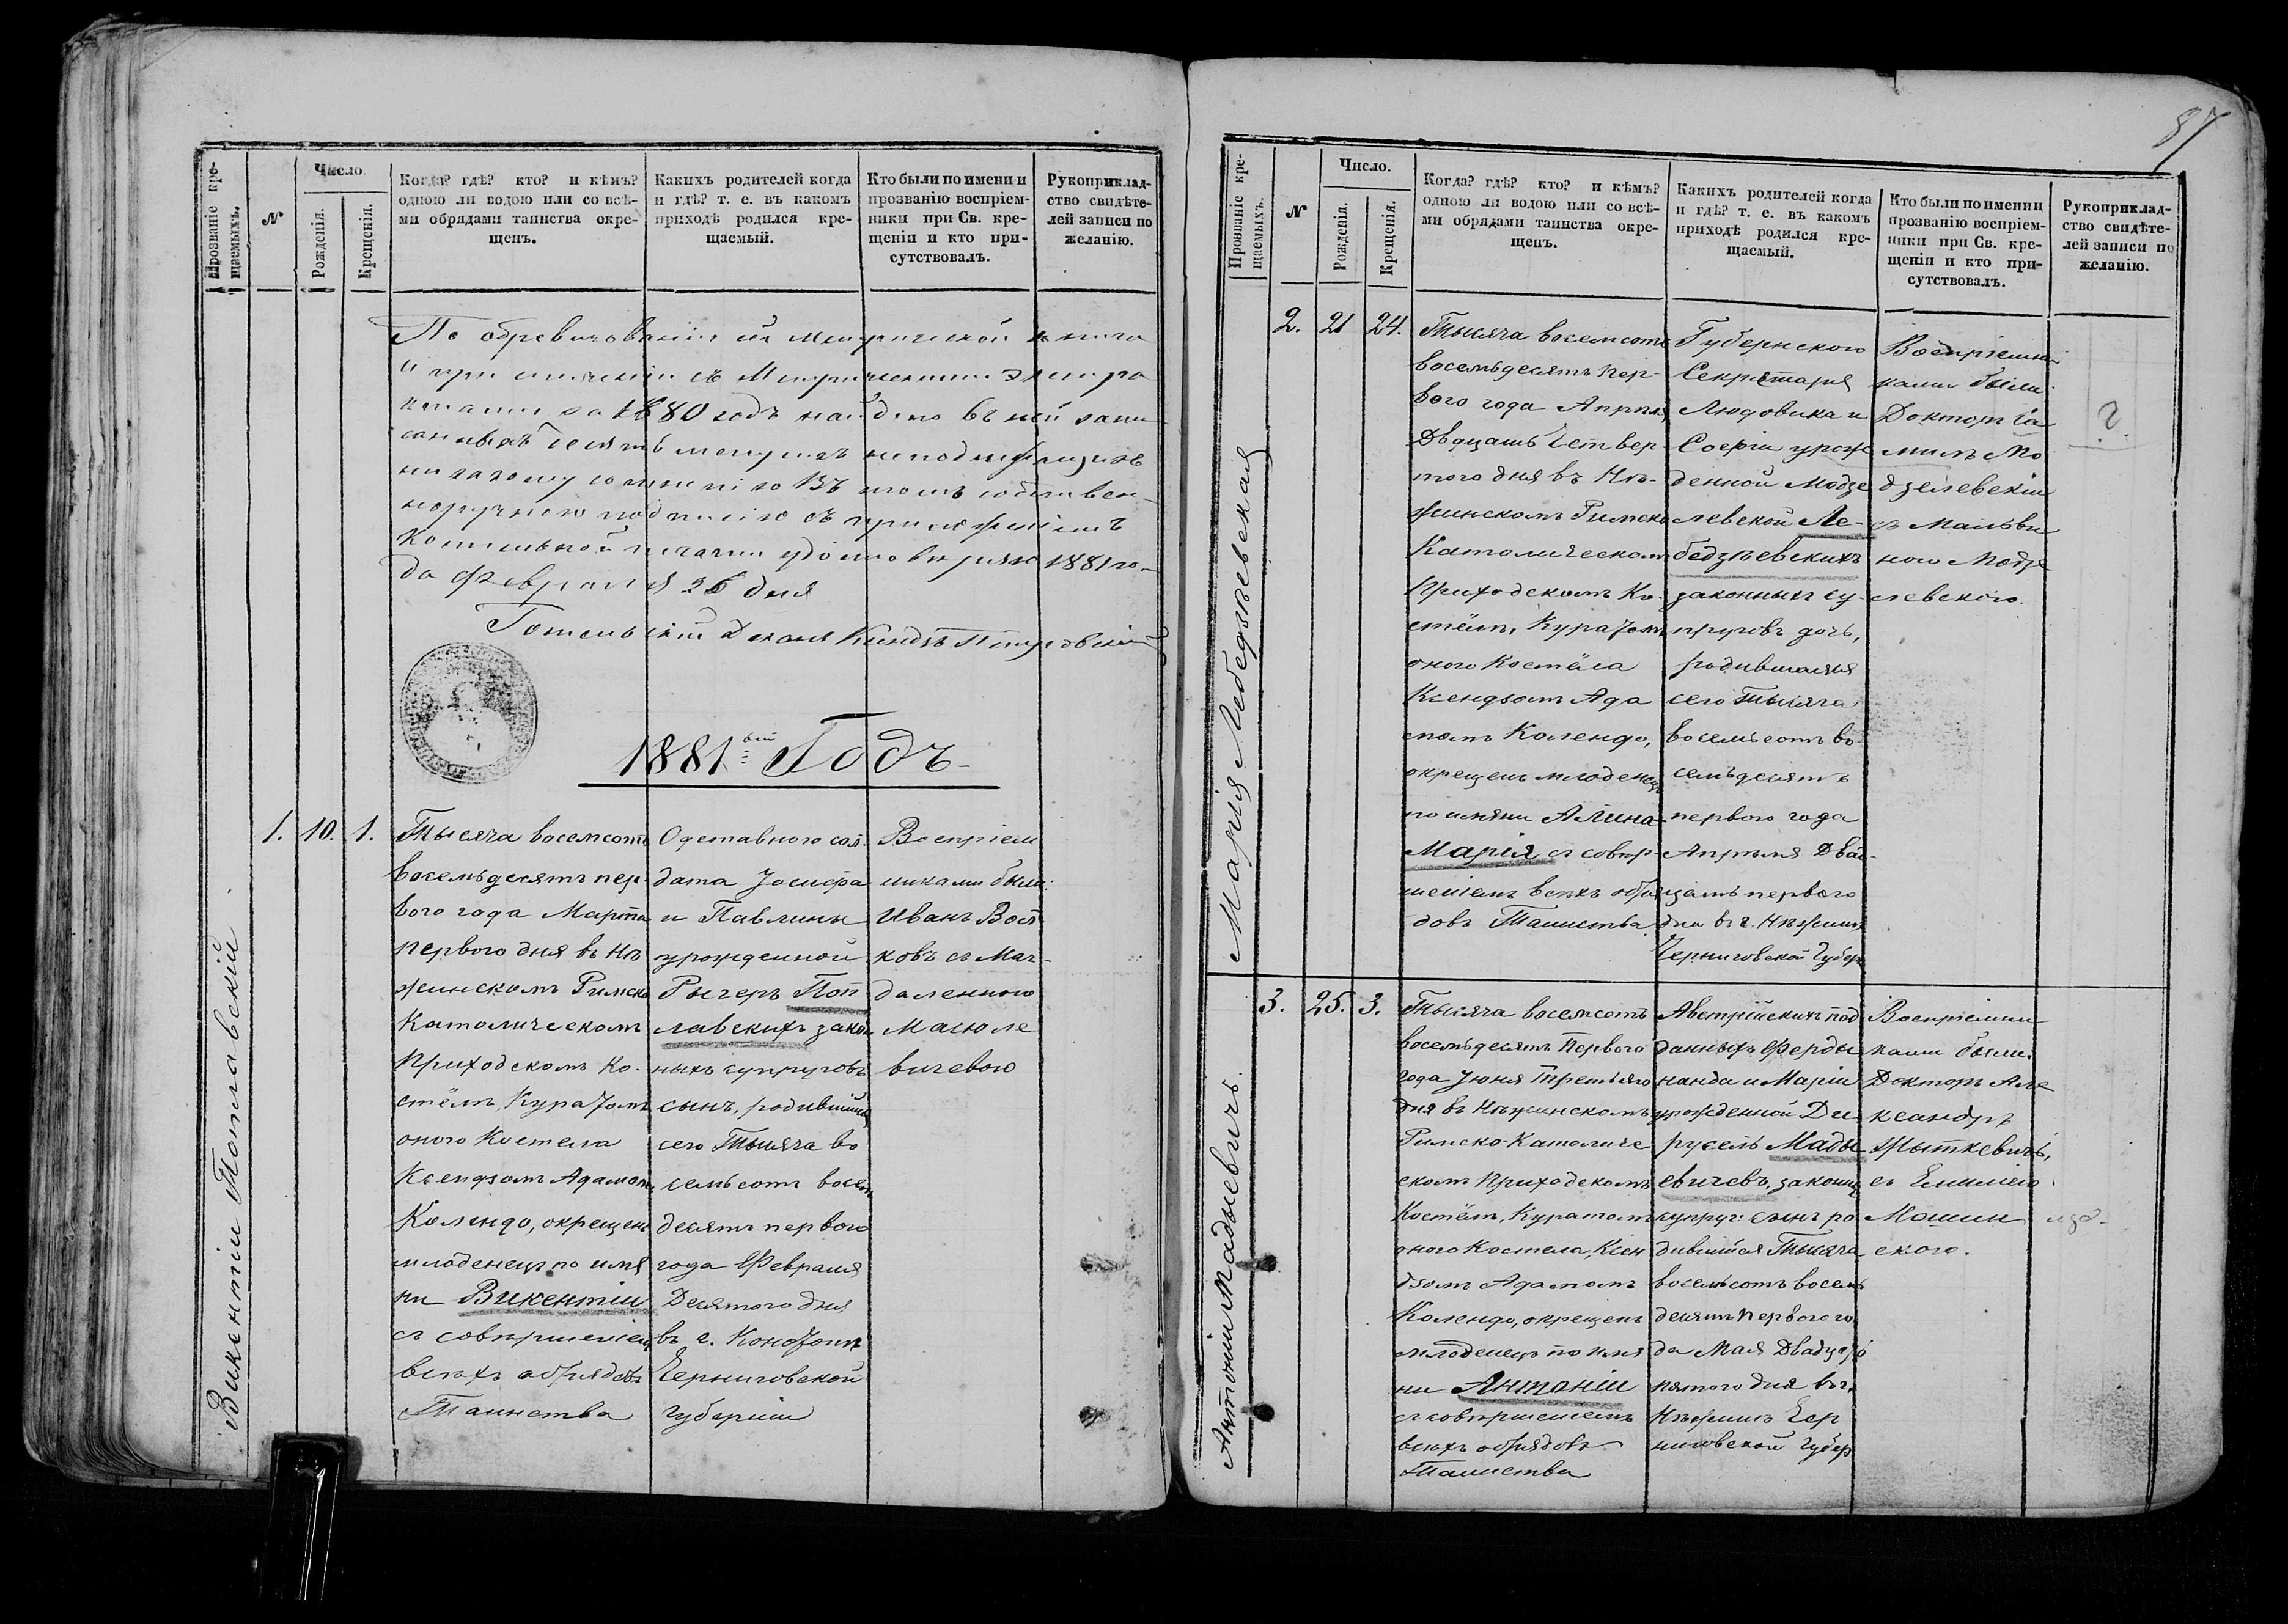 Прозваніе кре-
щаемыхъ.
№
Число.
Рожденія.
Крещенія.
Когда? гдѣ? кто? и кѣмъ?
одною ли водою или со всѣ-
ми обрядами таинства окре-
щенъ.
Какихъ родителей когда
и гдѣ? т. е. въ какомъ
приходѣ родился кре-
щаемый.
Кто были по имени и
прозванію воспріем-
ники при Св. кре-
щеніи и кто при-
сутствовалъ.
Рукоприклад-
ство свидѣте-
лей записи по
желанію.
По обревизованіи сей Метрической книги
и при сличеніи съ Метрическими
за 1880 годъ найдено въ ней запи
санныхъ десять
никакому сомненію Въ чемъ собствен-
норучною подписью съ приложеніемъ
печати удостовѣряю 1881 го-
да Февраля 26 дня
Гомельскій Деканъ Ксендзъ
1881 вый Годъ
Викентій Поплавскій
1. 10. 1.
Тысяча восемсотъ
восемьдесятъ пер-
вого года Марта
первого дня въ Нѣ
жинскомъ Римско
Католическомъ
Приходскомъ Ко-
стёлѣ, Куратомъ
оного Костела
Ксендзомъ Адамомъ
Колендо, окрещенъ
младенецъ по имя
ни Викентій
съ совершеніемъ
всѣхъ обрядовъ
Таинства
Отставного сол-
дата Іосифа
и Павлины
урожденной
Рыгеръ Поп
лавскихъ закон
ныхъ супруговъ
сынъ, родившійся
сего Тысяча во
семьсотъ восем
десятъ первого
года Февраля
Десятого дня
въ г. Конотопѣ
Черниговской
Губерніи
Воспріем
никами были:
Иванъ
ковъ съ Маг-
даленною
Масюле
вичевою
87
Прозваніе кре-
щаемыхъ.
№
Число.
Рожденія.
Крещенія.
Когда? гдѣ? кто? и кѣмъ?
одною ли водою или со всѣ-
ми обрядами таинства окре-
щенъ.
Какихъ родителей когда
и гдѣ? т. е. въ какомъ
приходѣ родился кре-
щаемый.
Кто были по имени и
прозванію воспріем-
ники при Св. кре-
щеніи и кто при-
сутствовалъ.
Рукоприклад-
ство свидѣте-
лей записи по
желанію.
Марія Лебедзѣевская
2. 21 24.
Тысяча восемсотъ
восемьдесятъ пер-
вого года Апрѣля
Двацать четвер-
того дня въ Нѣ-
жинскомъ Римско
Католическомъ
Приходскомъ Ко-
стёлѣ, Куратомъ
оного Костёла
Ксендзомъ Ада
момъ Колендо,
окрещенъ младенецъ
по имяни Алина-
Марія съ совер-
шеніемъ всѣхъ обря
довъ Таинства
Губернского
Секретаря
Людовика и
Софіи урож
денной Модзе
левской Ле-
бедзѣевскихъ
законныхъ су-
пруговъ дочь,
родившаяся
сего Тысяча
восемьсотъ во
семьдесятъ
первого года
Апрѣля Двад-
цать первого
дня въ г. Нѣжинѣ
Черниговской Губер
Воспріемни
ками были:
Докторъ Ка
милъ Мо
дзелевскій
съ Мальви
ною Модзе
левского.
?
Антоній Мадыевичъ.
3. 25. 3.
Тысяча восемсотъ
восемьдесятъ Первого
года Іюня Третьяго
дня въ Нѣжинскомъ
Римско-Католиче
скомъ Приходскомъ
Костёлѣ, Куратомъ
оного Костела, Ксен
дзомъ Адамомъ
Колендо, окрещенъ
младенецъ по имя
ни Антоній
съ совершеніемъ
всѣхъ обрядовъ
Таинства
Австрійскихъ под
данныхъ Ферды
нанда и Маріи
урожденной Ди
русель Мады
евичевъ, законн
супруг: сынъ ро
дившійся Тысяча
восемьсотъ восемь
десятъ Первого го
да Мая Двадцать
пятого дня въ г.
Нѣжинѣ Чер
ниговской Губер
Воспріемни
ками были:
Докторъ Але
ксандръ
Мыткевичъ,
съ Емиліею
Машин
ского.